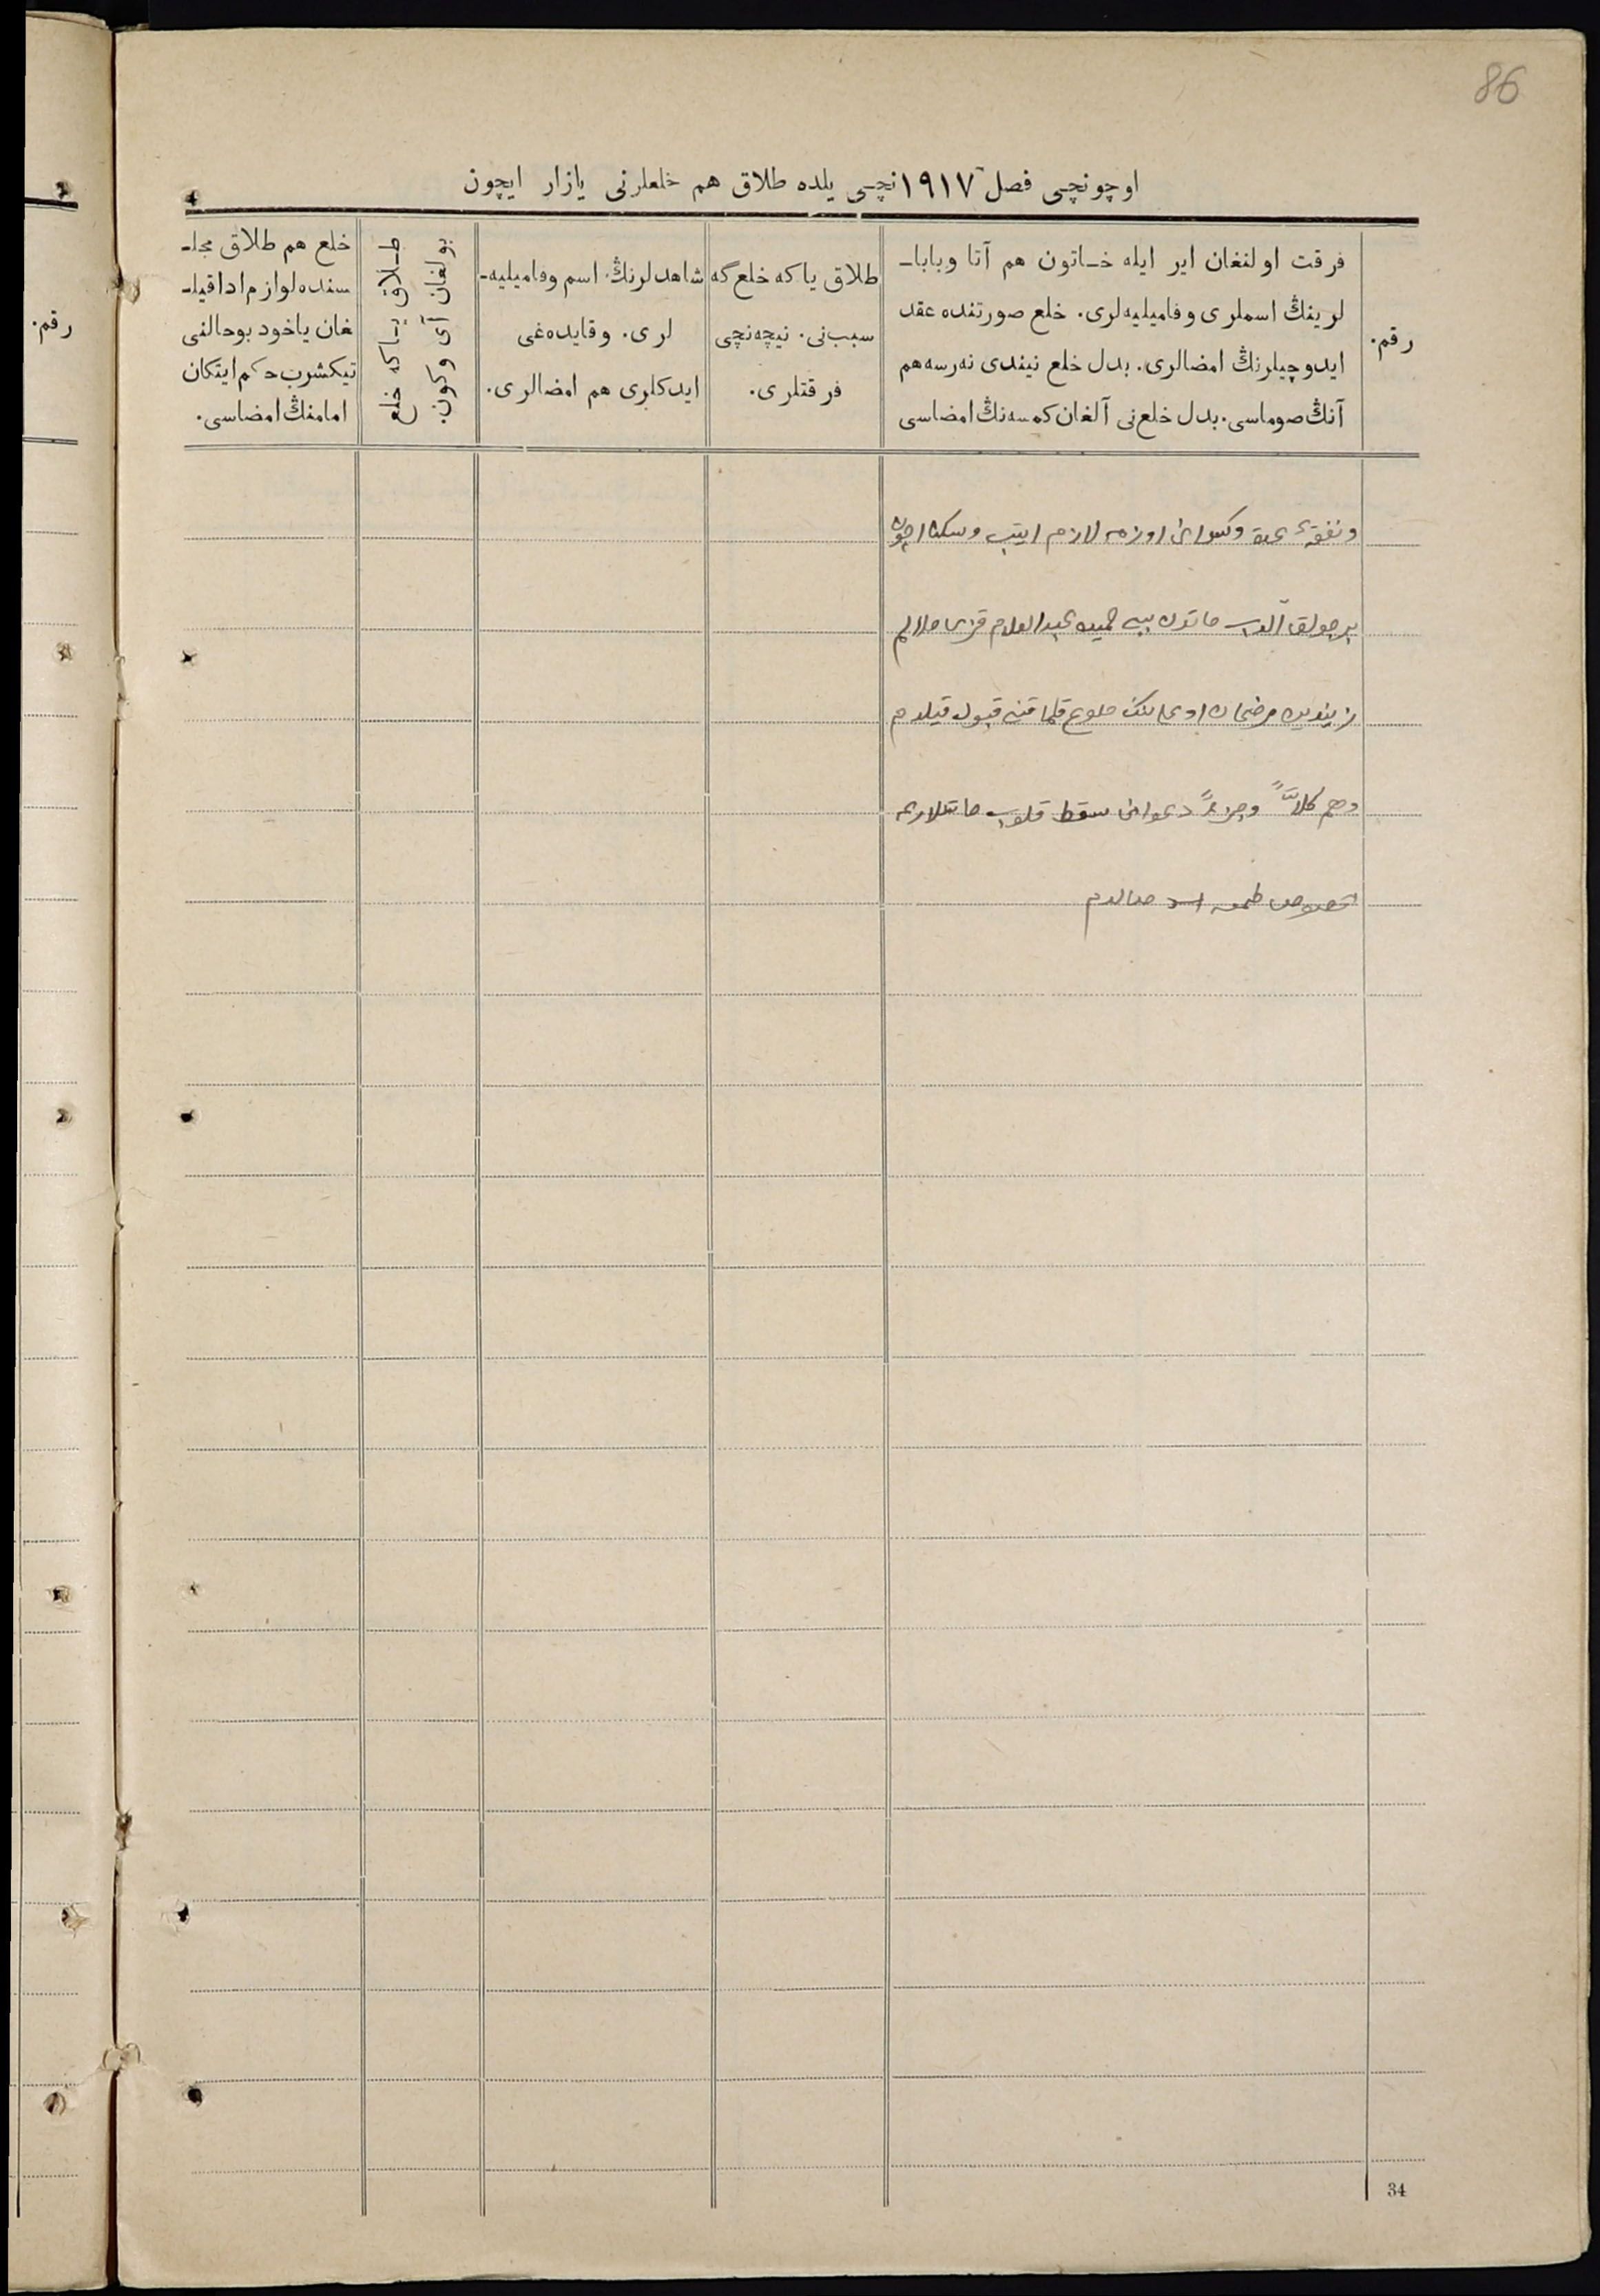 86
اوچونچی فصل ١٩١٧نچی یلده طلاق هم خلعلرنی یازار ایچون
رقم.
فرقت اولنغان ایر ایله خاتون هم آتا وبابا-
لرینڭ اسملری وفامیلیه‌لری. خلع صورتنده عقد
ایدوچیلرنڭ امضالری. بدل خلع نیندی نه‌رسه هم
آنڭ صوماسی. بدل خلع نی آلغان کمسه‌نڭ امضاسی
طلاق یا که خلع گه
سبب نی. نیچه‌نچی
فرقتلری.
شاهدلرنڭ اسم وفامیلیه-
لری. وقایده‌غی
ایدکلری هم امضالری.
طلاق یا که خلع
بولغان آی وکون.
خلع هم طلاق مجل-
سنده لوازم ادا قیل-
غان یاخود بوحالنی
تیکشرب حکم ایتکان
امامنڭ امضاسی.
رقم.
ونفقهٔ عدة وکسوانی اوزمه لازم ایتب وسکنا اچون
بر صولق آلوب خاتون بیبی حمیده عبدالعلام قزی
قبول قیلدم
وهم کلاً وجزءً دعوانی سقط قلوب
34